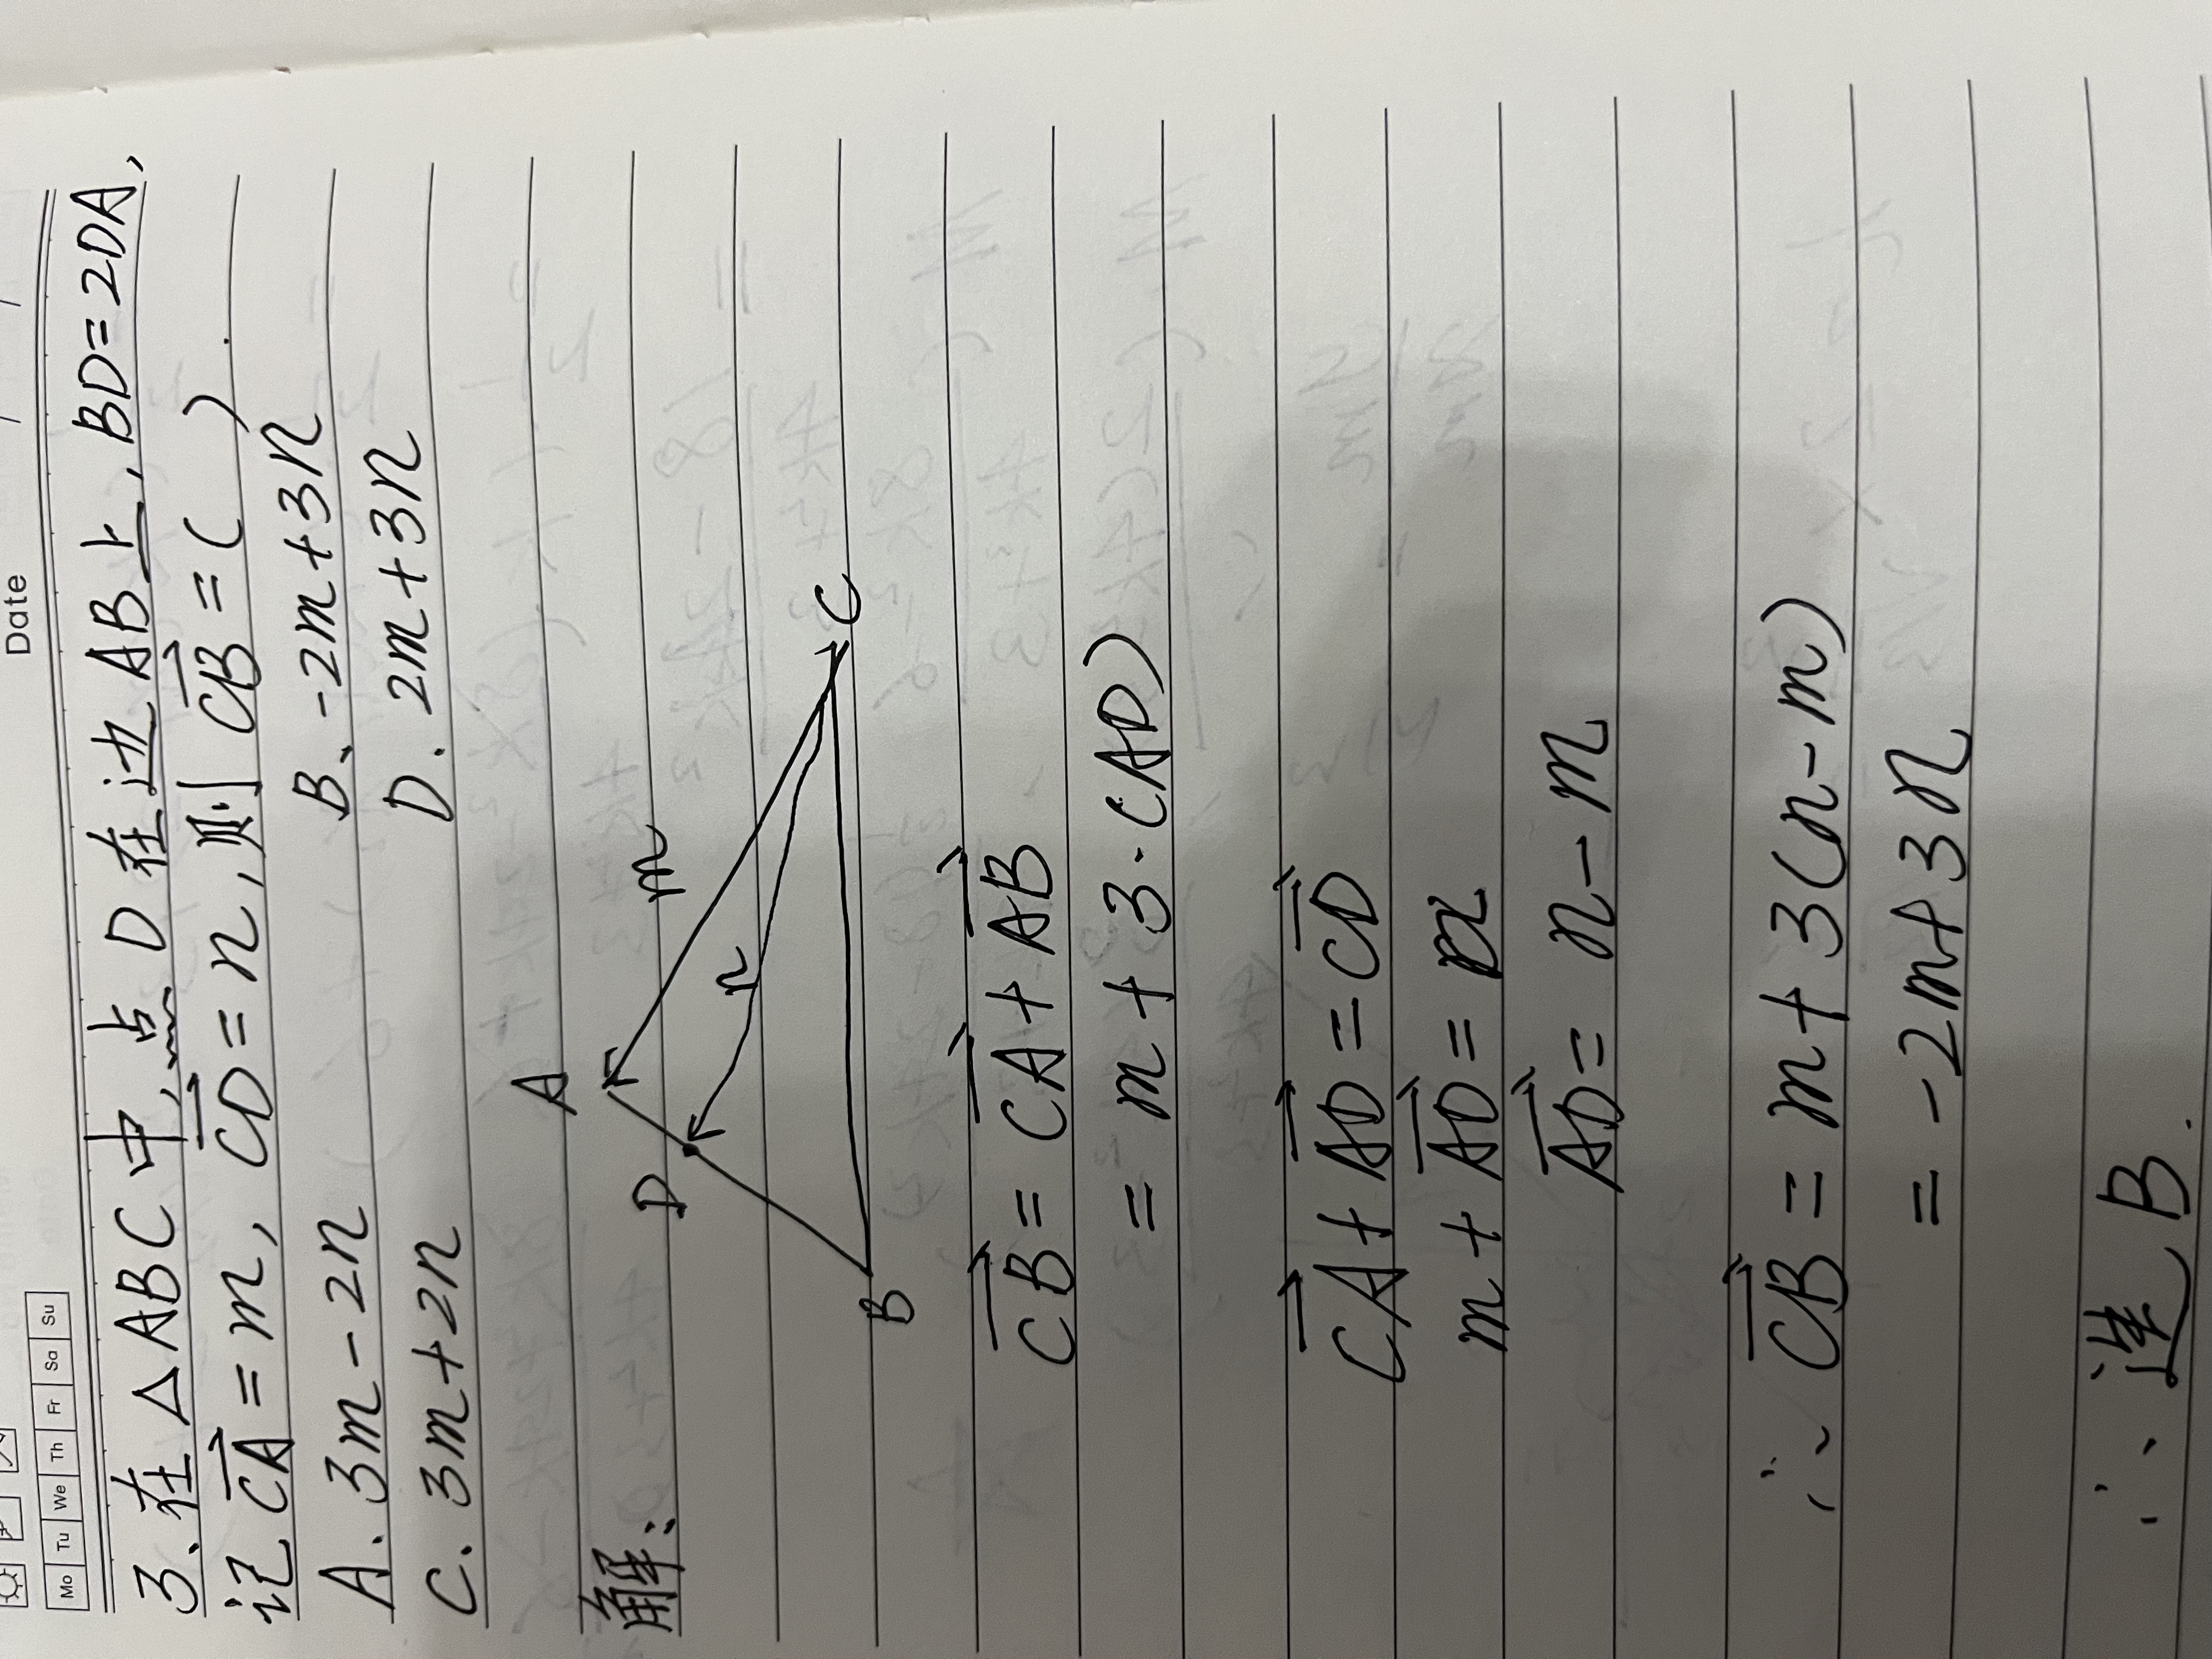 Date
Mo Tu We Th Fr Sa Su
3、在△ABC中,点D在边AB上,BD=2DA,
记CA=m, CD=n,则CB=( ).
A. 3m-2n B、-2m+3n
C. 3m+2n D. 2m+3n
解:
A
m
D
n
C
B
CB=CA+AB
=m+3·(AD)
CA+AD=CD
m+AD=n
AD=n-m
∴CB=m+3(n-m)
=-2m+3n
∴选B.